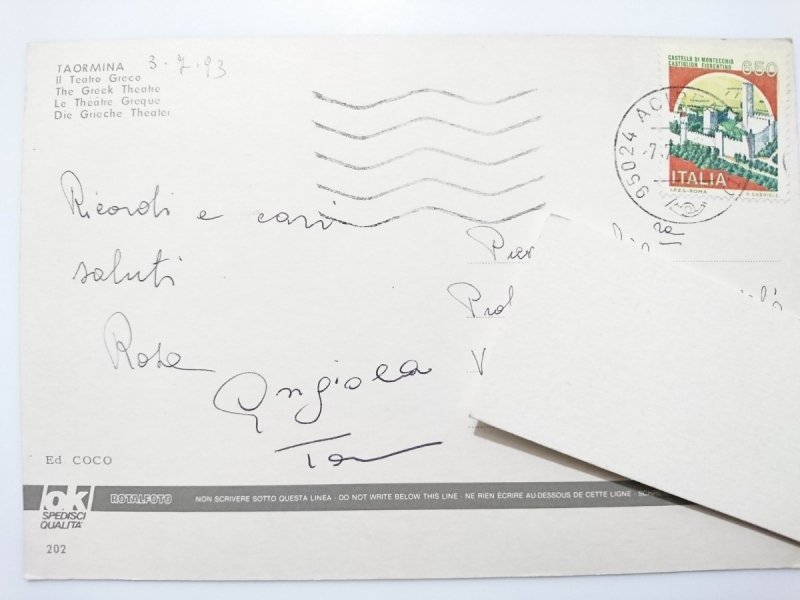 TAORMINA 3.7.93
Il Teatro Greco
The Greek Theatre
Le Théatre Greque
Die Grieche Theater
CASTELLO DI MONTECCHIO
CASTIGLION FIORENTINO
650
ITALIA
I.P.Z.S.-ROMA
95024 ACIR
Ricordi e cari
saluti
Rosa
Angiola
Ed COCO
ok
SPEDISCI
QUALITA'
ROTALFOTO
NON SCRIVERE SOTTO QUESTA LINEA · DO NOT WRITE BELOW THIS LINE · NE RIEN ÉCRIRE AU-DESSOUS DE CETTE LIGNE ·
202